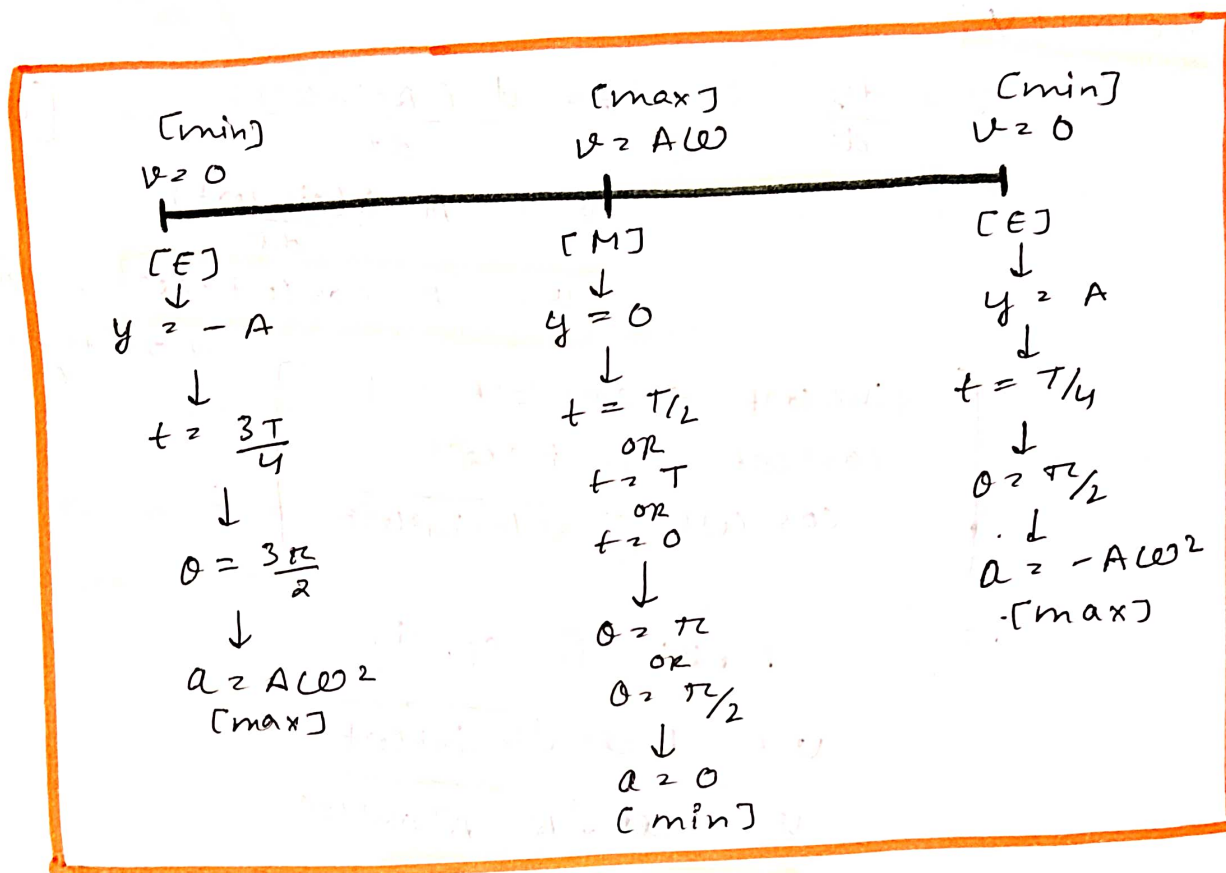 [min]
v = 0
[E]
↓
y = - A
↓
t = 3T/4
↓
θ = 3π/2
↓
a = Aω²
[max]
[max]
v = Aω
[M]
↓
y = 0
↓
t = T/2
OR
t = T
OR
t = 0
↓
θ = π
OR
θ = π/2
↓
a = 0
[min]
[min]
v = 0
[E]
↓
y = A
↓
t = T/4
↓
θ = π/2
↓
a = - Aω²
[max]